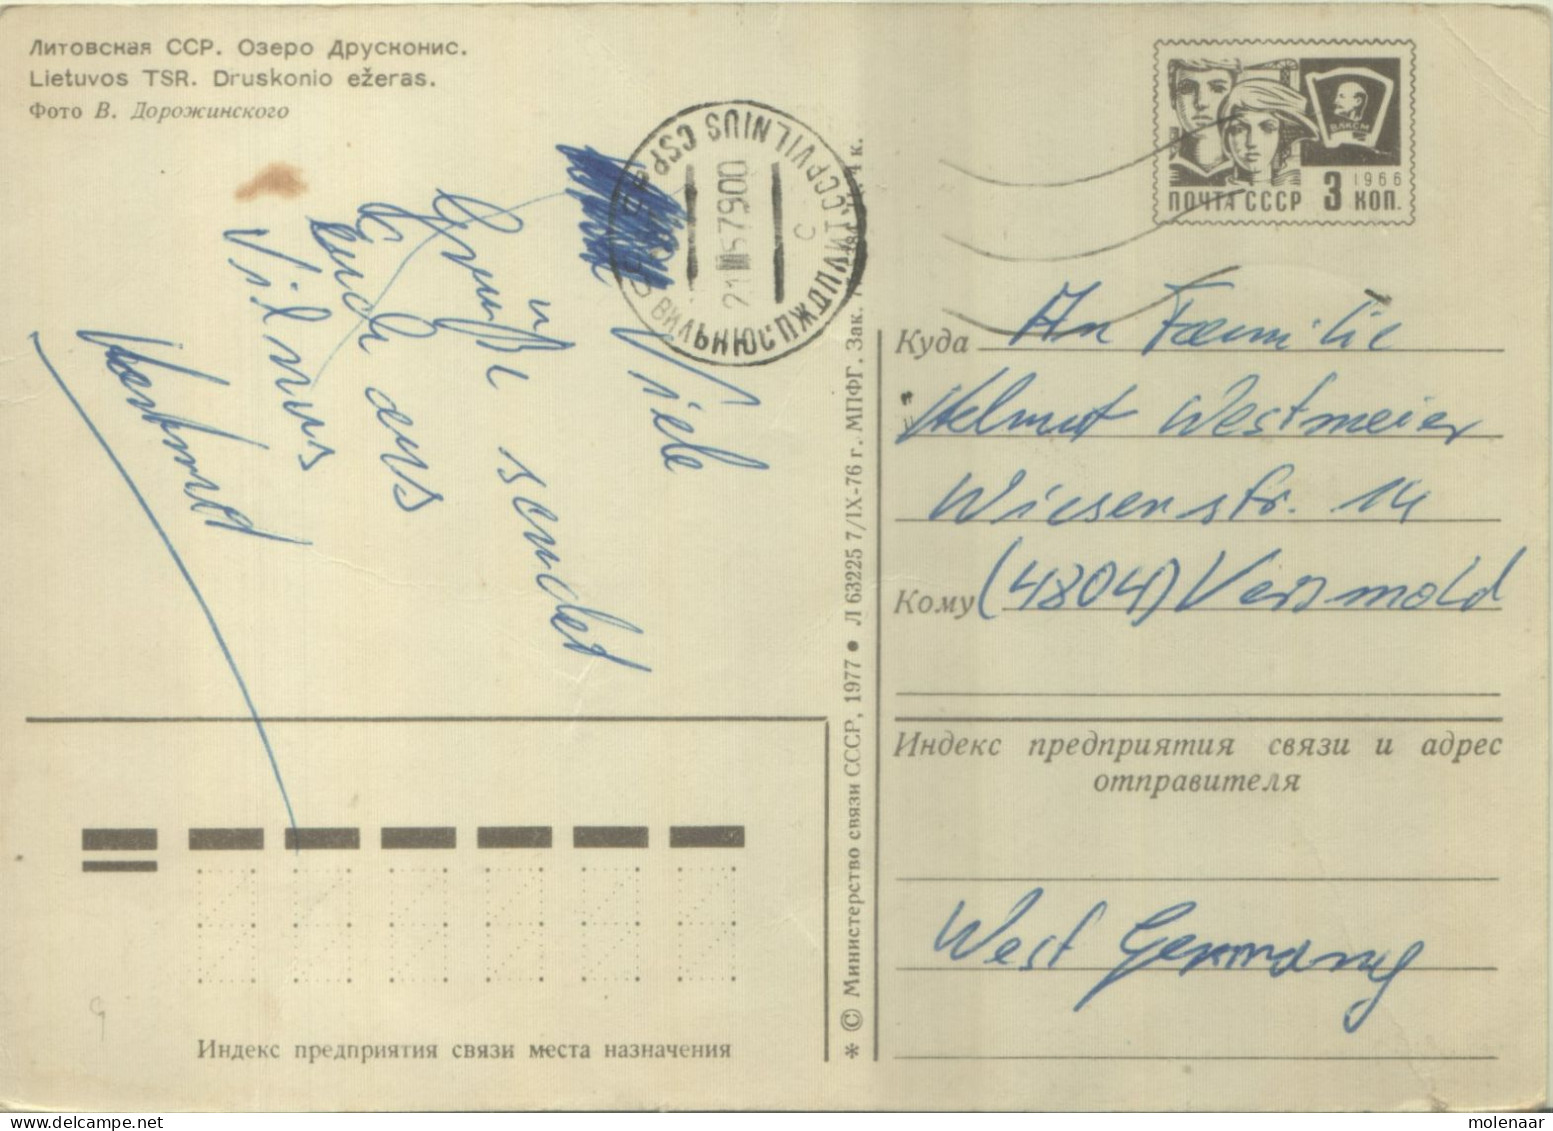 Литовская ССР. Озеро Друсконис.
Lietuvos TSR. Druskonio ežeras.
Фото В. Дорожинского
Viele
Grüße sendet
euch aus
Vilnius
ВИЛЬНЮС ПЖДП ЛИТ.ССР VILNIUS CSP
С
ПОЧТА СССР 3 КОП.
1966
ВЛКСМ
Куда An Familie
Helmut Westmeier
Wiesenstr. 14
Кому (4804) Versmold
Индекс предприятия связи и адрес
отправителя
West Germany
Индекс предприятия связи места назначения
* © Министерство связи СССР, 1977 • Л 63225 7/IX-76 г. МПФГ. Зак. 4 к.
molenaar